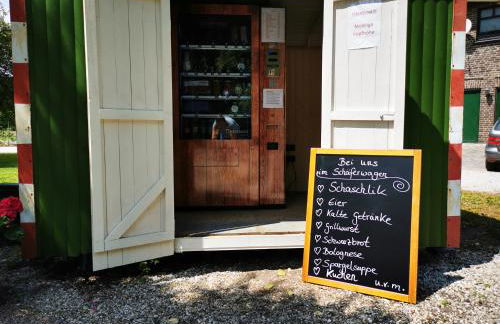 Bei uns
im Schäferwagen
Schaschlik
Eier
Kalte Getränke
Grillwurst
Schwarzbrot
Bolognese
Spargelsuppe
Kuchen u.v.m.